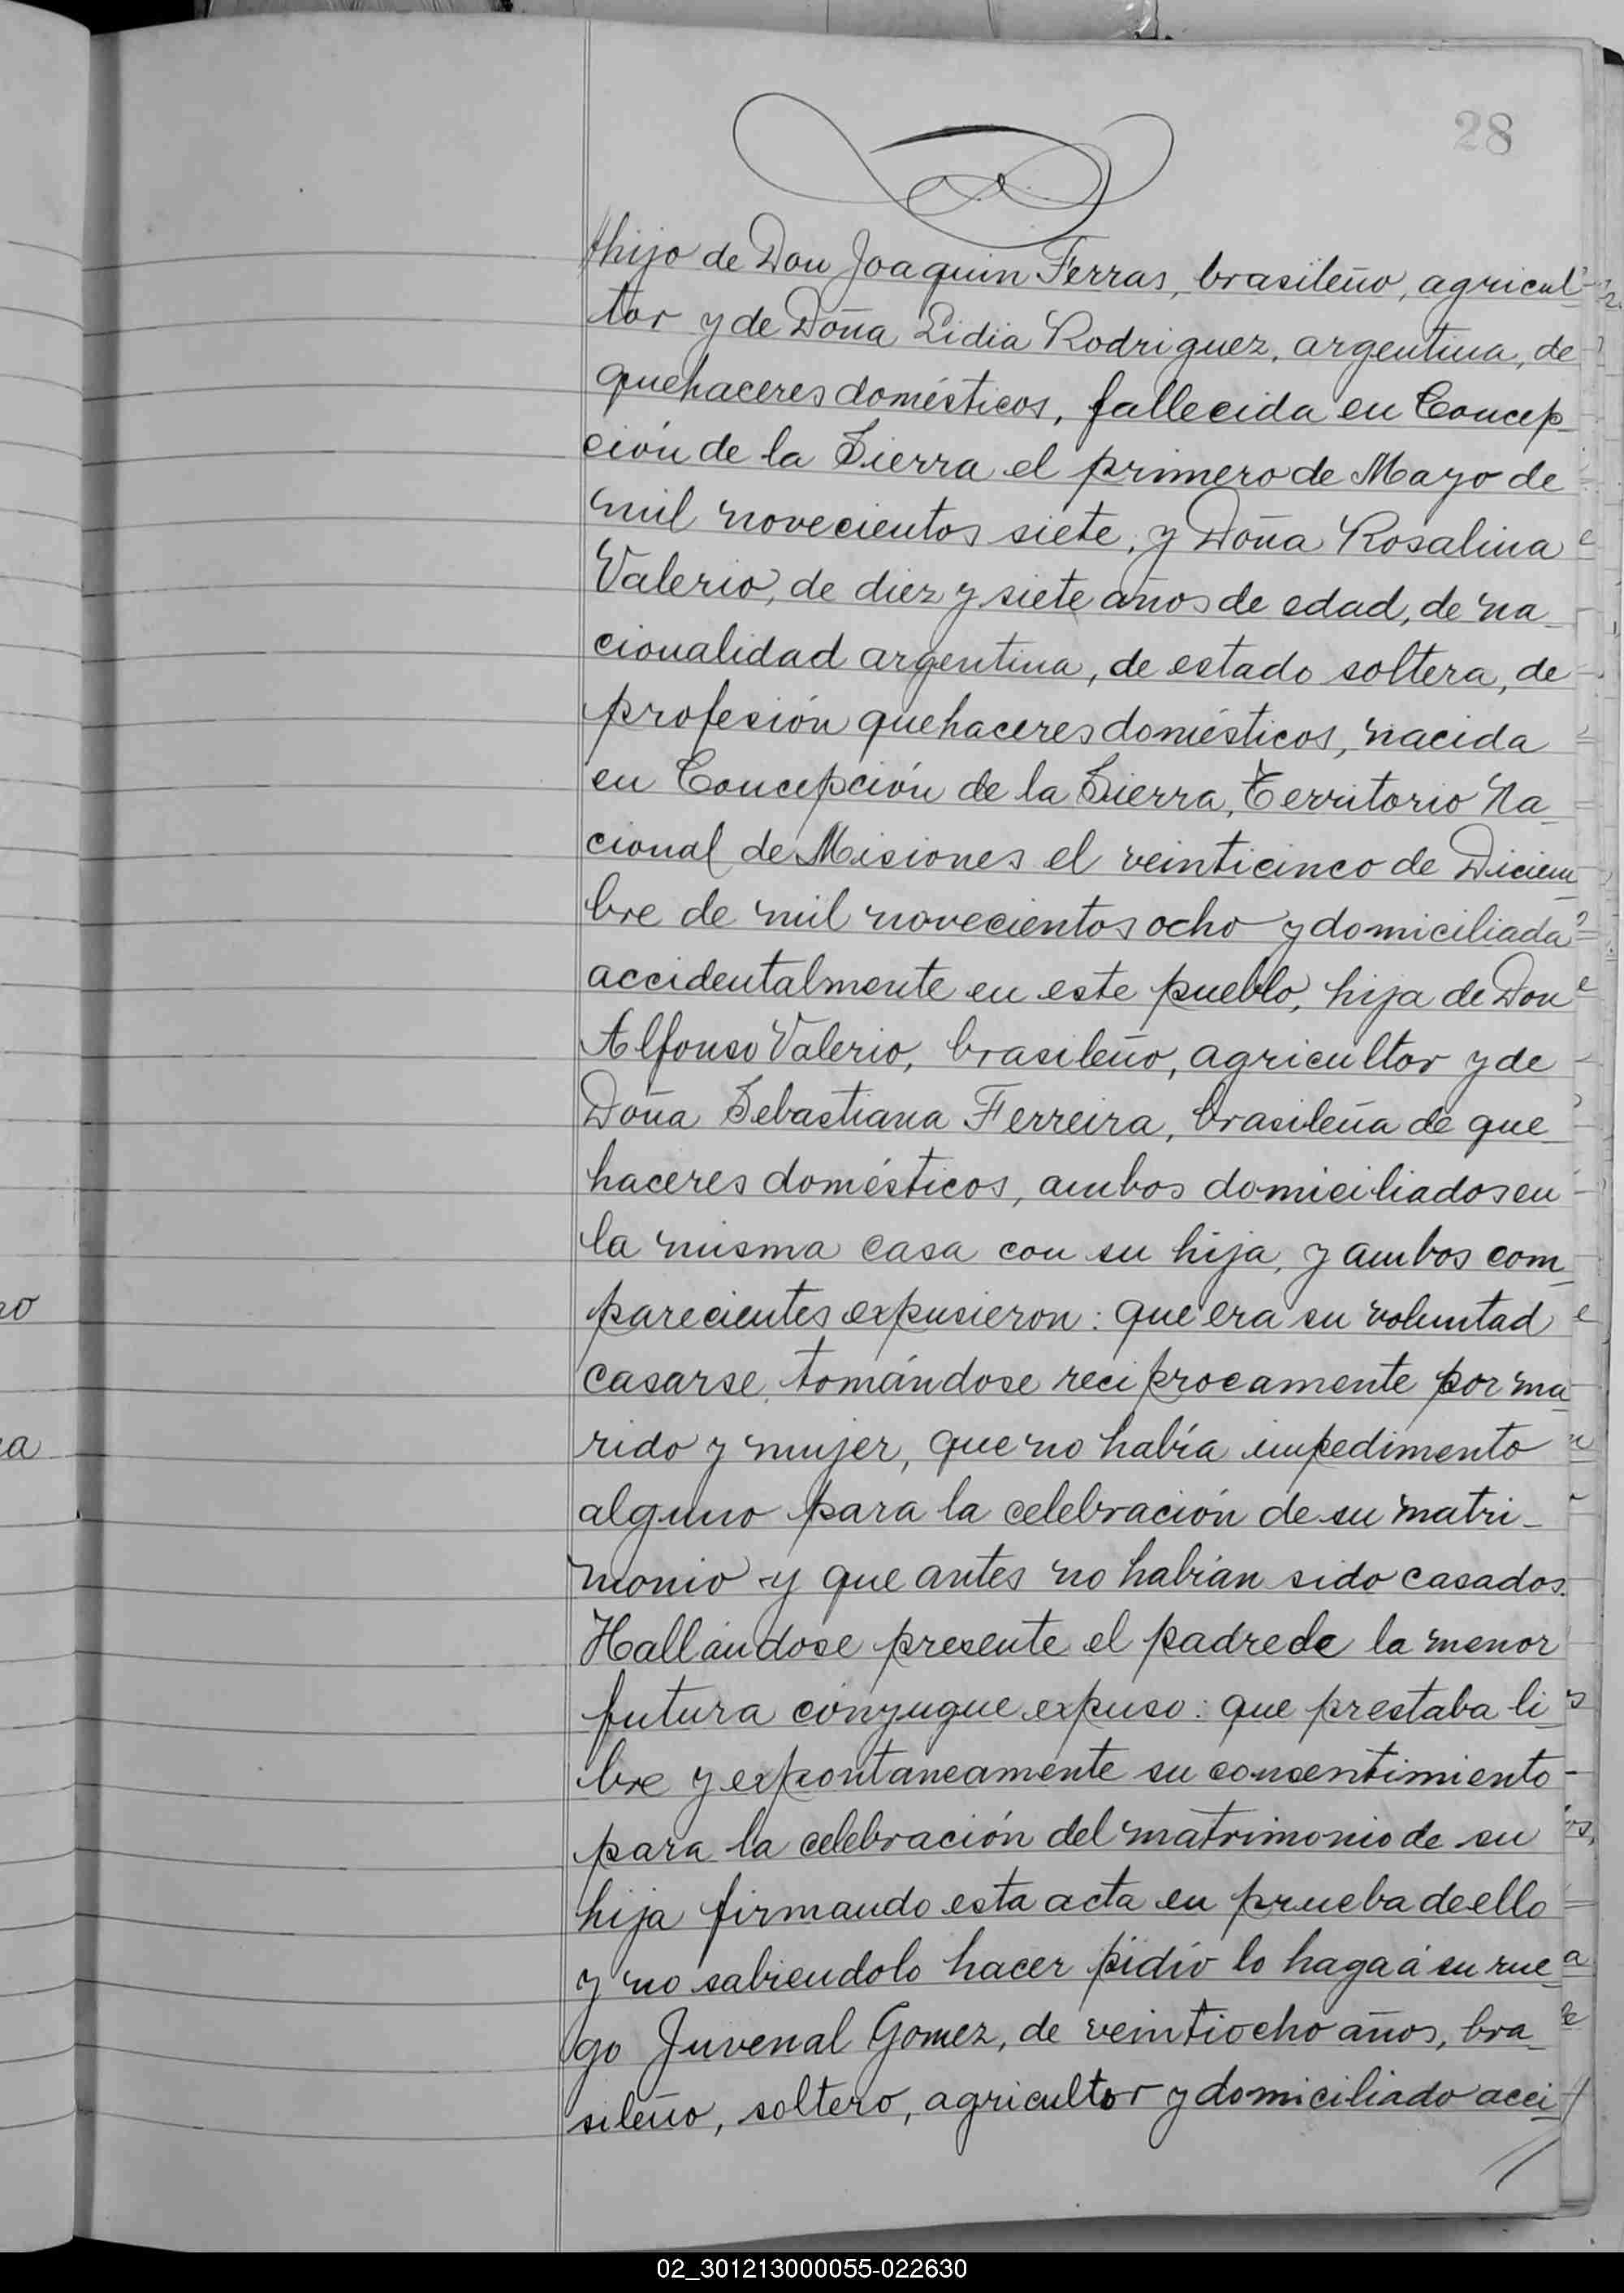 28
hijo de Don Joaquin Ferras, brasileño, agricul-
tor y de Doña Lidia Rodriguez, argentina, de
quehaceres domésticos, fallecida en Concep-
ción de la Sierra el primero de Mayo de
mil novecientos siete, y Doña Rosalina
Valerio, de diez y siete años de edad, de na-
cionalidad argentina, de estado soltera, de
profesión quehaceres domésticos, nacida
en Concepción de la Sierra, Territorio Na-
cional de Misiones el veinticinco de Diciem-
bre de mil novecientos ocho y domiciliada
accidentalmente en este pueblo, hija de Don
Alfonso Valerio, brasileño, agricultor y de
Doña Sebastiana Ferreira, brasileña de que-
haceres domésticos, ambos domiciliados en
la misma casa con su hija, y ambos com-
parecientes expusieron: que era su voluntad
casarse, tomándose reciprocamente por ma-
rido y mujer, que no había impedimento
alguno para la celebración de su matri-
monio y que antes no habían sido casados.
Hallándose presente el padre de la menor
futura cónyugue expuso: que prestaba li-
bre y expontaneamente su consentimiento
para la celebración del matrimonio de su
hija firmando esta acta en prueba de ello
y no sabiendolo hacer pidió lo haga á su rue-
go Juvenal Gomez, de veintiocho años, bra-
sileño, soltero, agricultor y domiciliado acci-
02_301213000055-022630